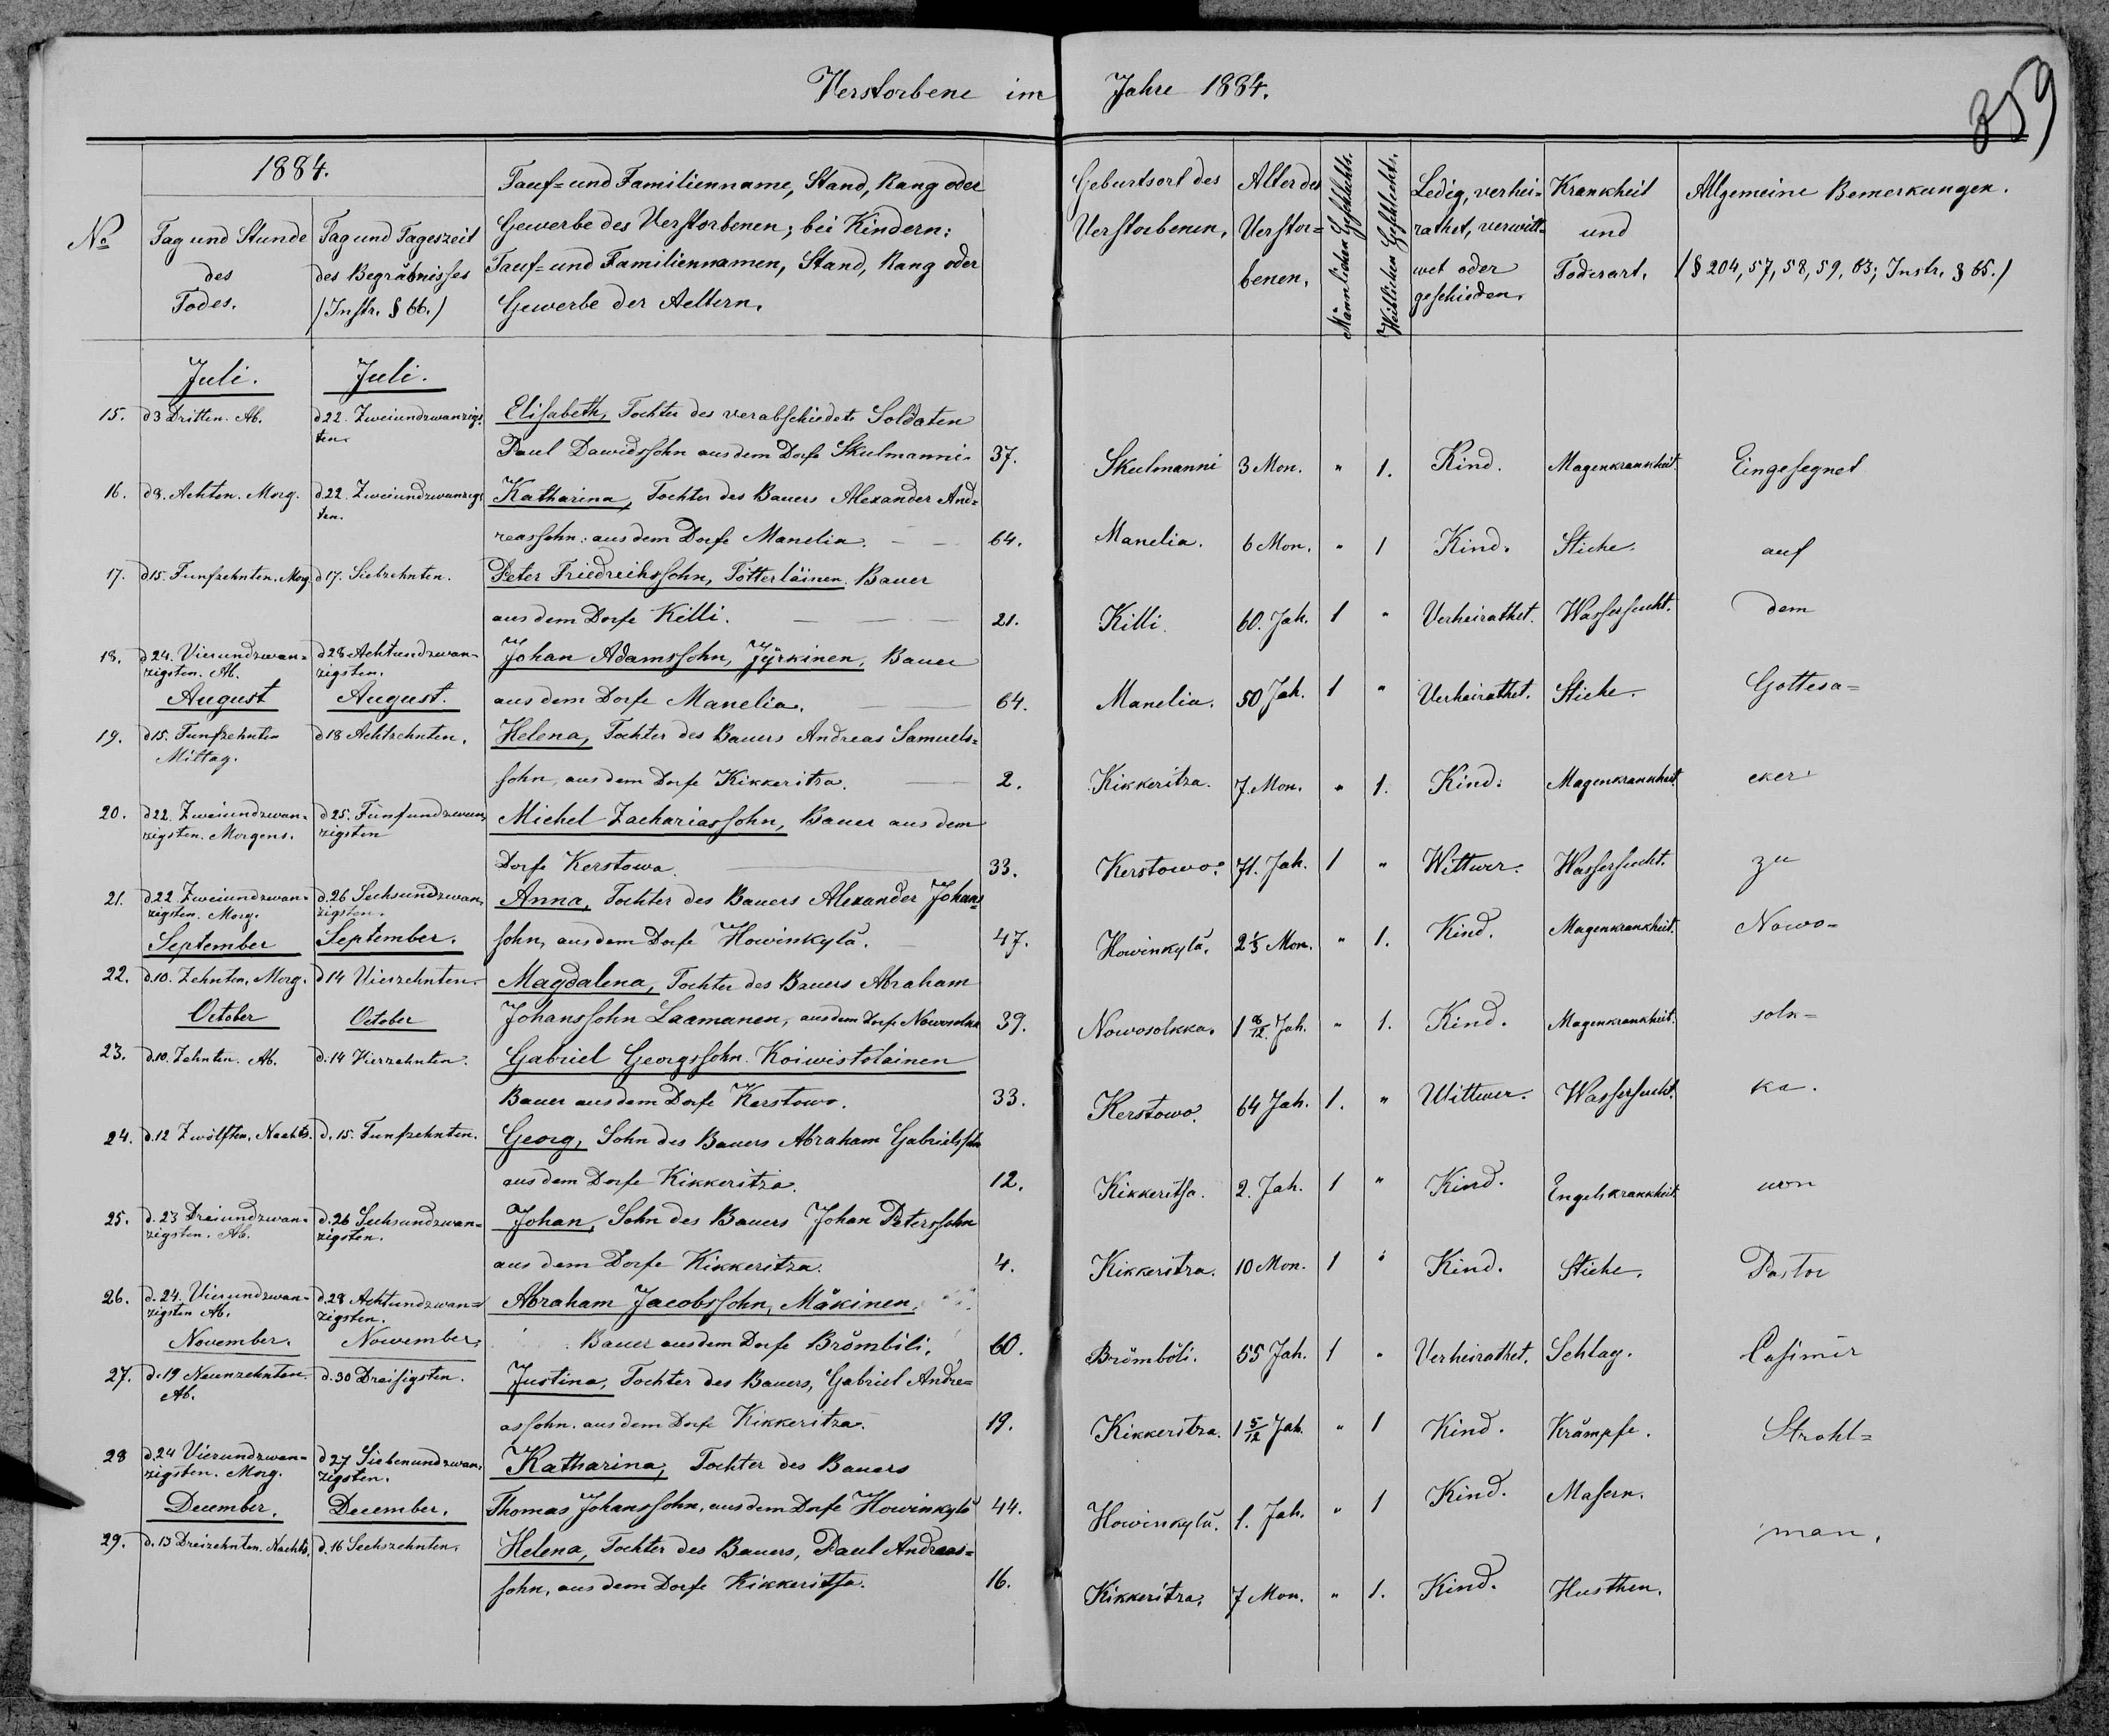 Verstorbene im Jahre 1884.
359
1884.
№
Tag und Stunde
des
Todes.
Tag und Tageszeit
des Begräbnisses
/Instr. § 66./
Tauf- und Familienname, Stand, Rang oder
Gewerbe des Verstorbenen; bei Kindern:
Tauf- und Familiennamen, Stand, Rang oder
Gewerbe der Aeltern.
Geburtsort des
Verstorbenen.
Alter des
Verstor=
benen.
Männlichen Geschlechts.
Weiblichen Geschlechts.
Ledig, verhei=
rathet, verwitt=
wet oder
geschieden.
Krankheit
und
Todesart.
Allgemeine Bemerkungen.
/§ 204, 57, 58, 59, 63; Instr. § 65./
Juli. Juli.
15. d 3 Dritten. Ab. d 22. Zweiundzwanzigs= Elisabeth, Tochter des verabschiedete Soldaten
ten.
Paul Dawidssohn aus dem Dorfe Skulmanni. 37. Skulmanni 3 Mon. " 1. Kind. Magenkrankheit. Eingesegnet
16. d 8. Achten. Morg. d. 22. Zweiundzwanzigs Katharina, Tochter des Bauers Alexander And=
ten.
reassohn: aus dem Dorfe Manelia. 64. Manelia. 6 Mon. " 1 Kind. Stiche. auf
17. d 15. Funfzehnten. Morg. d 17. Siebzehnten. Peter Friedreihssohn, Tötterläinen. Bauer
aus dem Dorfe Killi. 21. Killi. 60. Jah. 1 " Verheirathet. Wassersucht. dem
18. d 24. Vierundzwan= d 28 Achtundzwan= Johan Adamssohn, Jyrkinen, Bauer
zigsten. Ab. zigsten.
August August. aus dem Dorfe Manelia. 64. Manelia. 50 Jah. 1 " Verheirathet. Stiche. Gottesa=
19. d 15. Funfzehnten d 18 Achtzehnten. Helena, Tochter des Bauers Andreas Samuels=
Mittag.
sohn, aus dem Dorfe Kikkeritza. 2. Kikkeritza. 7. Mon. " 1. Kind. Magenkrankheit. cker
20. d 22. Zweiundzwan= d 25. Fünfundzwan= Michel Zachariassohn, Bauer aus dem
zigsten. Morgens. zigsten
Dorfe Kerstowa. 33. Kerstowo. 71. Jah. 1 " Wittwer. Wassersucht. zu
21. d 22 Zweiundzwan= d. 26 Sechsundzwan= Anna, Tochter des Bauers Alexander Johans=
zigsten. Morg. zigsten.
September September. sohn, aus dem Dorfe Howinkylä. 47. Howinkylä. 2 1/3 Mon. " 1. Kind. Magenkrankheit. Nowo=
22. d. 10. Zehnten. Morg. d 14 Vierzehnten. Magdalena, Tochter des Bauers Abraham
October October Johanssohn Laamanen, aus dem Dorfe Nowosolka 39. Nowosolkka. 1 8/12. Jah. " 1. Kind. Magenkrankheit. solk=
23. d. 10. Zehnten. Ab. d. 14 Vierzehnten. Gabriel Georgssohn. Koiwistolainen
Bauer aus dem Dorfe Kerstowo. 33. Kerstowo. 64 Jah. 1. " Wittwer. Wassersucht. ka.
24. d. 12 Zwölften. Nachts. d. 15. Funfzehnten. Georg, Sohn des Bauers Abraham Gabrielssohn
aus dem Dorfe Kikkeritza. 12. Kikkeritsa. 2. Jah. 1 " Kind. Engelskrankheit. von
25. d. 23 Dreiundzwan= d. 26 Sechsundzwan= Johan, Sohn des Bauers Johan Peterssohn
zigsten. Ab. zigsten.
aus dem Dorfe Kikkeritza. 4. Kikkeritza. 10 Mon. 1 " Kind. Stiche. Pastor
26. d. 24. Vierundzwan= d. 28 Achtundzwan= Abraham Jacobssohn, Mäkinen.
zigsten Ab. zigsten.
November. Nowember. Bauer aus dem Dorfe Brömbili. 60. Brömböli. 55 Jah. 1 " Verheirathet. Schlag. Casimir
27. d. 19 Neunzehnten. d. 30 Dreisigsten. Justina, Tochter des Bauers, Gabriel Andre=
Ab.
assohn. aus dem Dorfe Kikkeritza. 19. Kikkeritza. 1 5/12 Jah. " 1 Kind. Krämpfe. Strahl=
28 d. 24 Vierundzwan= d 27 Siebenundzwan= Katharina, Tochter des Bauers
zigsten. Morg. zigsten.
December. December. Thomas Johanssohn, aus dem Dorfe Howinkylä 44. Howinkylä. 1. Jah. " 1 Kind. Masern. man.
29. d. 13 Dreizehnten. Nachts. d. 16 Sechszehnten. Helena, Tochter des Bauers, Paul Andreas=
sohn, aus dem Dorfe Kikkeritsa. 16. Kikkeritza. 7 Mon. " 1. Kind. Husthen.